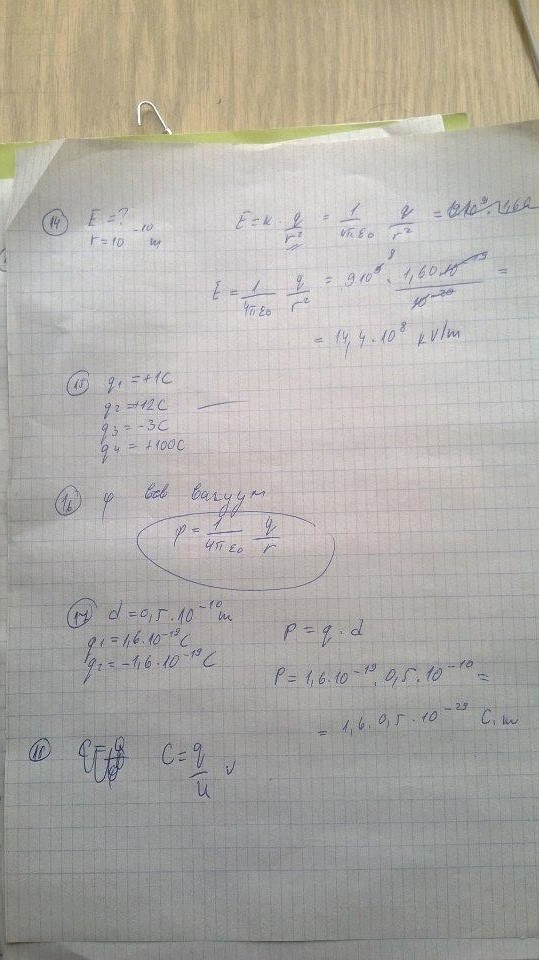 14 E = ?
r = 10⁻¹⁰ m
E = k · q/r² = 1/4πε₀ q/r² =
E = 1/4πε₀ q/r² = 9 10⁹ · 1,60 10⁻¹⁹/10⁻²⁰ =
= 14,4 · 10⁸ kV/m
15 q₁ = +1C
q₂ = +12C
q₃ = -3C
q₄ = +100C
16 φ във вакуум
φ = 1/4πε₀ q/r
17 d = 0,5 · 10⁻¹⁰ m
q₁ = 1,6 · 10⁻¹⁹ C
q₂ = -1,6 · 10⁻¹⁹ C
P = q · d
P = 1,6 · 10⁻¹⁹ . 0,5 . 10⁻¹⁰ =
= 1,6 . 0,5 . 10⁻²⁹ C.m
18 C = q/u